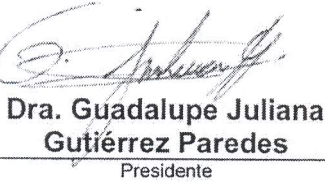 Dra. Guadalupe Juliana
Gutiérrez Paredes
Presidente